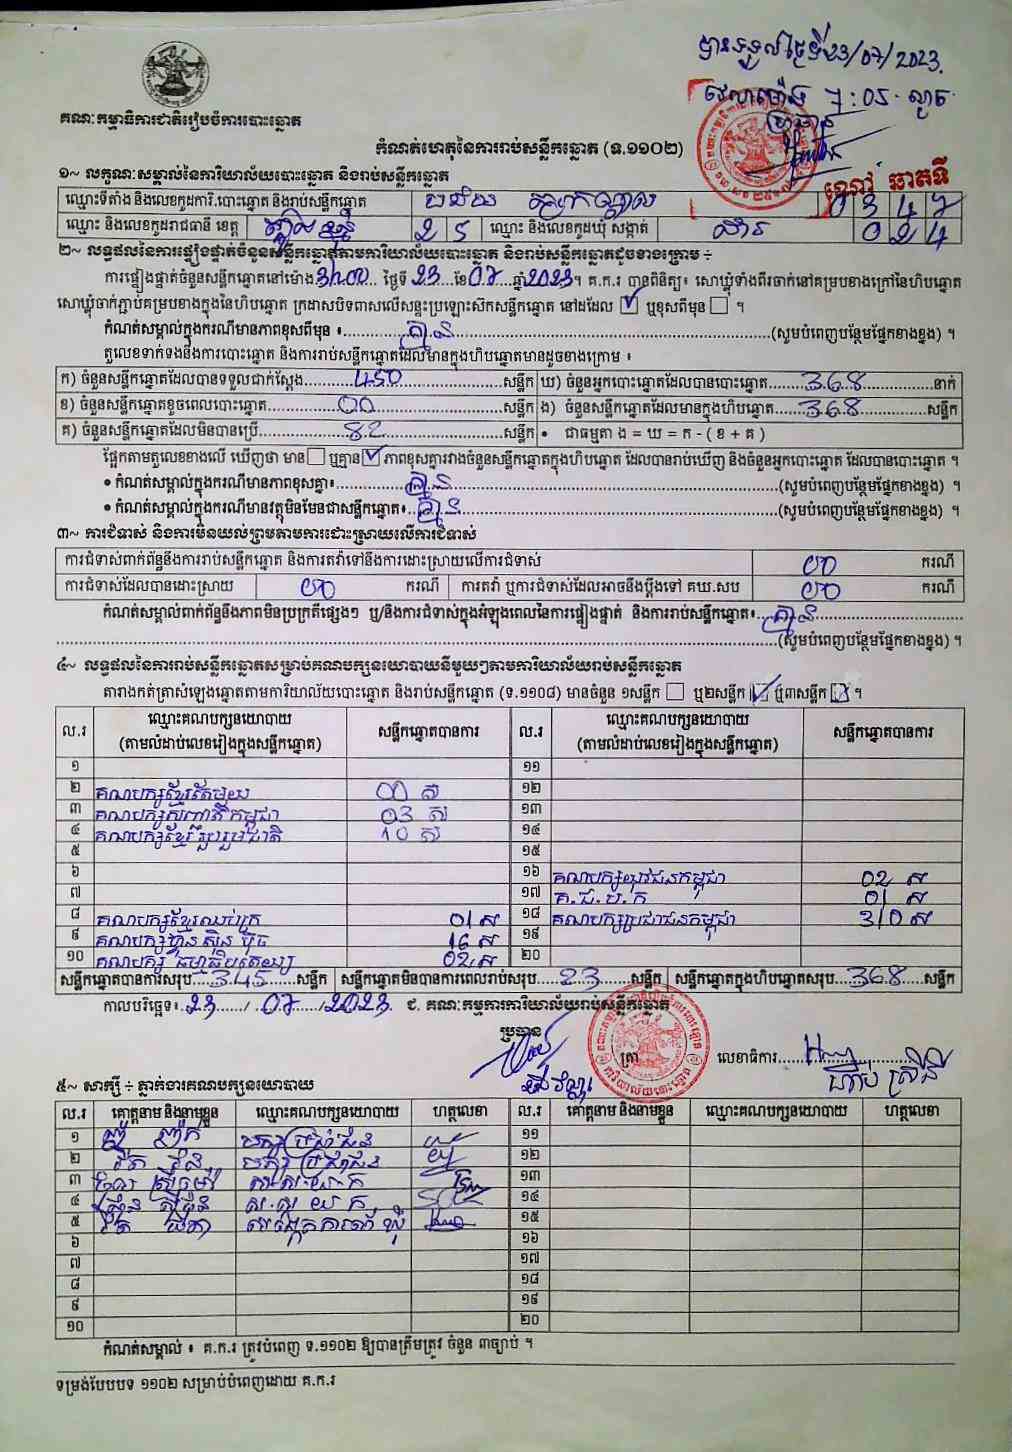 បានទទួលថ្ងៃទី23/07/2023.
វេលាម៉ោង 7:05 ល្ងាច
ប្រធាន
គណៈកម្មាធិការជាតិរៀបចំការបោះឆ្នោត
កំណត់ហេតុនៃការរាប់សន្លឹកឆ្នោត (ទ.១១០២)
១~ លក្ខណៈសម្គាល់នៃការិយាល័យបោះឆ្នោត និងរាប់សន្លឹកឆ្នោត
ឈ្មោះទីតាំង និងលេខកូដការិ.បោះឆ្នោត និងរាប់សន្លឹកឆ្នោត 0 3 4 7
ឈ្មោះ និងលេខកូដរាជធានី ខេត្ត ត្បូងឃ្មុំ 2 5 ឈ្មោះ និងលេខកូដឃុំ សង្កាត់ 0 2 4
២~ លទ្ធផលនៃការផ្ទៀងផ្ទាត់ចំនួនសន្លឹកឆ្នោតតាមការិយាល័យបោះឆ្នោត និងរាប់សន្លឹកឆ្នោតដូចខាងក្រោម ÷
ការផ្ទៀងផ្ទាត់ចំនួនសន្លឹកឆ្នោតនៅម៉ោង 3:00 ថ្ងៃទី 23 ខែ 07 ឆ្នាំ 2023។ គ.ក.រ បានពិនិត្យ៖ សោឃ្លុំទាំងពីរចាក់នៅគម្របខាងក្រៅនៃហិបឆ្នោត
សោឃ្លុំចាក់ភ្ជាប់គម្របខាងក្នុងនៃហិបឆ្នោត ក្រដាសបិទពាសលើសន្ទះប្រឡោះស៊កសន្លឹកឆ្នោត នៅដដែល ☑ ឬខុសពីមុន ☐ ។
កំណត់សម្គាល់ក្នុងករណីមានភាពខុសពីមុន ៖ គ្មាន (សូមបំពេញបន្ថែមផ្នែកខាងខ្នង) ។
តួលេខទាក់ទងនឹងការបោះឆ្នោត និងការរាប់សន្លឹកឆ្នោតដែលមានក្នុងហិបឆ្នោតមានដូចខាងក្រោម ៖
ក) ចំនួនសន្លឹកឆ្នោតដែលបានទទួលជាក់ស្តែង 450 សន្លឹក ឃ) ចំនួនអ្នកបោះឆ្នោតដែលបានបោះឆ្នោត 368 នាក់
ខ) ចំនួនសន្លឹកឆ្នោតខូចពេលបោះឆ្នោត 00 សន្លឹក ង) ចំនួនសន្លឹកឆ្នោតដែលមានក្នុងហិបឆ្នោត 368 សន្លឹក
គ) ចំនួនសន្លឹកឆ្នោតដែលមិនបានប្រើ 82 សន្លឹក • ជាធម្មតា ង = ឃ = ក - ( ខ + គ )
ផ្អែកតាមតួលេខខាងលើ ឃើញថា មាន ☐ ឬគ្មាន ☑ ភាពខុសគ្នារវាងចំនួនសន្លឹកឆ្នោតក្នុងហិបឆ្នោត ដែលបានរាប់ឃើញ និងចំនួនអ្នកបោះឆ្នោត ដែលបានបោះឆ្នោត ។
• កំណត់សម្គាល់ក្នុងករណីមានភាពខុសគ្នា៖ គ្មាន (សូមបំពេញបន្ថែមផ្នែកខាងខ្នង) ។
• កំណត់សម្គាល់ក្នុងករណីមានវត្ថុមិនមែនជាសន្លឹកឆ្នោត៖ គ្មាន (សូមបំពេញបន្ថែមផ្នែកខាងខ្នង) ។
៣~ ការជំទាស់ និងការមិនយល់ព្រមតាមការដោះស្រាយលើការជំទាស់
ការជំទាស់ពាក់ព័ន្ធនឹងការរាប់សន្លឹកឆ្នោត និងការតវ៉ាទៅនឹងការដោះស្រាយលើការជំទាស់ 00 ករណី
ការជំទាស់ដែលបានដោះស្រាយ 00 ករណី ការតវ៉ា ឬការជំទាស់ដែលអាចនឹងប្តឹងទៅ គឃ.សប 00 ករណី
កំណត់សម្គាល់ពាក់ព័ន្ធនឹងភាពមិនប្រក្រតីផ្សេងៗ ឬ/និងការជំទាស់ក្នុងអំឡុងពេលនៃការផ្ទៀងផ្ទាត់ និងការរាប់សន្លឹកឆ្នោត៖ គ្មាន
(សូមបំពេញបន្ថែមផ្នែកខាងខ្នង) ។
៤~ លទ្ធផលនៃការរាប់សន្លឹកឆ្នោតសម្រាប់គណបក្សនយោបាយនីមួយៗតាមការិយាល័យរាប់សន្លឹកឆ្នោត
តារាងកត់ត្រាសំឡេងឆ្នោតតាមការិយាល័យបោះឆ្នោត និងរាប់សន្លឹកឆ្នោត (ទ.១១០៨) មានចំនួន ១សន្លឹក ☐ ឬ២សន្លឹក ☑ ឬ៣សន្លឹក ☑ ។
ល.រ ឈ្មោះគណបក្សនយោបាយ សន្លឹកឆ្នោតបានការ ល.រ ឈ្មោះគណបក្សនយោបាយ សន្លឹកឆ្នោតបានការ
(តាមលំដាប់លេខរៀងក្នុងសន្លឹកឆ្នោត) (តាមលំដាប់លេខរៀងក្នុងសន្លឹកឆ្នោត)
១ ១១
២ គណបក្សខ្មែរតែមួយ 00 ស ១២
៣ គណបក្សសញ្ជាតិកម្ពុជា 03 ស ១៣
៤ គណបក្សខ្មែររួបរួមជាតិ 10 ស ១៤
៥ ១៥
៦ ១៦ គណបក្សយុវជនកម្ពុជា 02 ស
៧ ១៧ គ.ជ.ប.ក 01 ស
៨ គណបក្សខ្មែរឈប់ក្រ 01 ស ១៨ គណបក្សប្រជាជនកម្ពុជា 310 ស
៩ គណបក្សហ៊្វុនស៊ិនប៉ិច 16 ស ១៩
១០ គណបក្ស ធម្មាធិបតេយ្យ 02 ស ២០
សន្លឹកឆ្នោតបានការសរុប 345 សន្លឹក សន្លឹកឆ្នោតមិនបានការពេលរាប់សរុប 23 សន្លឹក សន្លឹកឆ្នោតក្នុងហិបឆ្នោតសរុប 368 សន្លឹក
កាលបរិច្ឆេទ៖ 23 / 07 / 2023 ជ. គណៈកម្មការការិយាល័យរាប់សន្លឹកឆ្នោត
ប្រធាន
ត្រា លេខាធិការ
៥~ សាក្សី ÷ ភ្នាក់ងារគណបក្សនយោបាយ
ល.រ គោត្តនាម និងនាមខ្លួន ឈ្មោះគណបក្សនយោបាយ ហត្ថលេខា ល.រ គោត្តនាម និងនាមខ្លួន ឈ្មោះគណបក្សនយោបាយ ហត្ថលេខា
១ ១១
២ ១២
៣ ១៣
៤ ១៤
៥ ១៥
៦ ១៦
៧ ១៧
៨ ១៨
៩ ១៩
១០ ២០
កំណត់សម្គាល់ ៖ គ.ក.រ ត្រូវបំពេញ ទ.១១០២ ឱ្យបានត្រឹមត្រូវ ចំនួន ៣ច្បាប់ ។
ទម្រង់បែបបទ ១១០២ សម្រាប់បំពេញដោយ គ.ក.រ